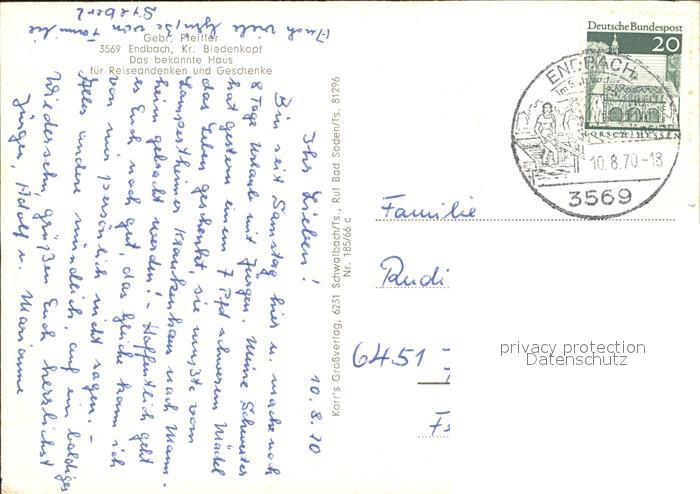 Auch viele Grüße von Familie
Gebr. Pfeiffer
3569 Endbach, Kr. Biedenkopf
Das bekannte Haus
für Reiseandenken und Geschenke
10.8.70
Ihr Lieben!
Bin seit Samstag hier u. mache noch
8 Tage Urlaub mit Jürgen. Meine Schwester
hat gestern einem 7 Pfd schwerem Mädel
das Leben geschenkt, sie mußte vom
Lampertheimer Krankenhaus nach Mann-
heim gebracht werden! - Hoffentlich geht
es Euch noch gut, das gleiche kann ich
von mir persönlich nicht sagen! -
Alles andere mündlich, auf ein baldiges
Wiedersehn grüßen Euch herzlichst
Jürgen, Adolf u. Marianne
Korr's Großverlag, 6231 Schwalbach/Ts., Ruf Bad Soden/Ts. 81296
Nr. 185/66 c
Deutsche Bundespost
20
LORSCH/HESSEN
ENDBACH
10.8.70-18
3569
Familie
Rudi
6451
privacy protection
Datenschutz